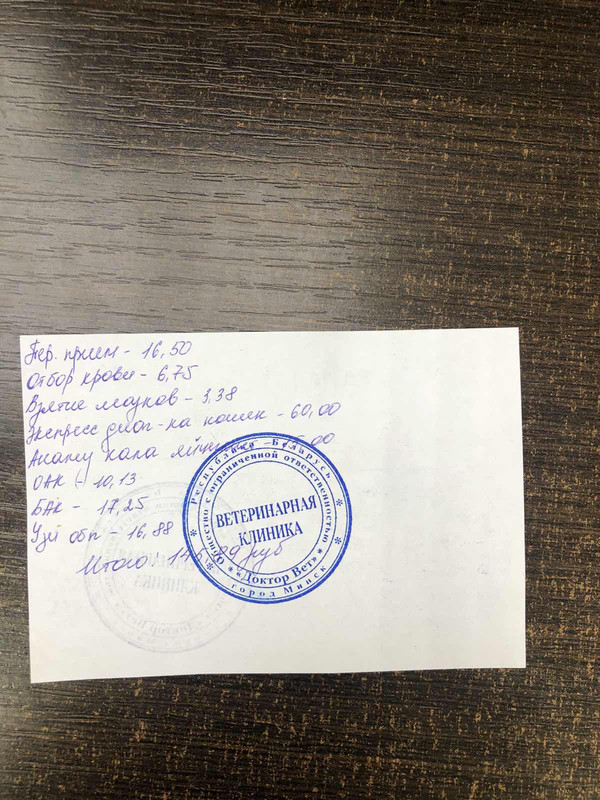 Пер. прием - 16,50
Отбор крови - 6,75
Взятие мазков - 3,38
Экспресс диаг-ка кошек - 60,00
Анализ кала
ОАК - 10,13
БАК - 17,25
Узи обп - 16,88
Итого: руб
Республика Беларусь
Общество с ограниченной ответственностью
ВЕТЕРИНАРНАЯ
КЛИНИКА
«Доктор Вет»
город Минск